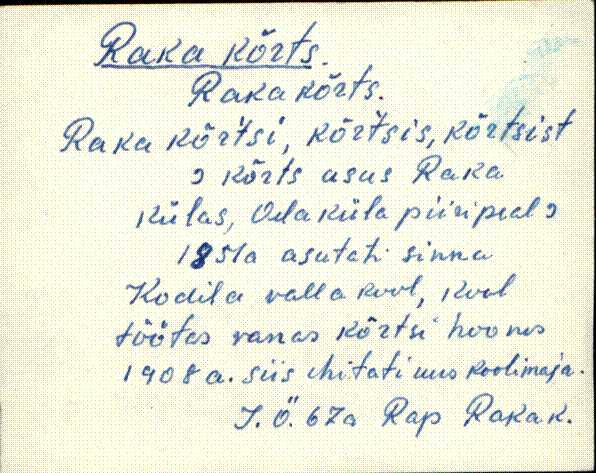 Raka kõrts.
Raka kõrts.
Raka kõrtsi, kõrtsis, kõrtsist
ɔ kõrts asus Raka
külas, Oela küla piiripeal ɔ
1851a asutati sinna
Kodila valla kool, kool
töötas vanas kõrtsi hoones
1908 a. siis ehitati uus koolimaja.
J. Ö. 67a Rap Raka k.